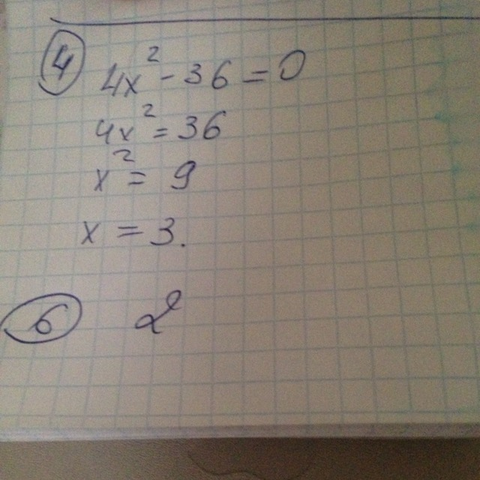 ④ 4x² - 36 = 0
4x² = 36
x² = 9
x = 3.
⑥ 2